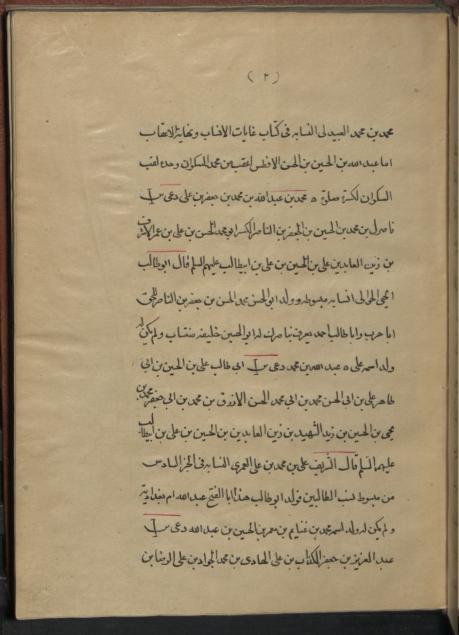 (٢)
محمد بن محمد العبيدلى النسابه فى كتاب غايات الانساب ونهاية الاعقاب
اما عبد الله بن الحسين بن الحسن الافطس اعقب من محمد السكران وحده لقب
السكران لكثرة صلوته محمد بن عبد الله بن محمد بن جعفر بن على دعى
ناصرك بن محمد بن الحسين بن الناصر الكبير ابو محمد الحسن بن على بن عمر الاشرف
بن زين العابدين على بن الحسين بن على بن ابيطالب عليهم السلم قال ابو طالب
النسابه وولد ابو الحسن محمد بن جعفر بن الناصر للحق
ابا حرب وابا طالب احمد يعرف بناصرك له ابو الحسين خليفه ولم يكن له
ولد اسمه على عبد الله بن محمد دعى ابى طالب على بن الحسين بن ابى
طاهر على بن ابى الحسن محمد بن ابى محمد الحسن الازرق بن محمد بن ابى جعفر محمد بن
يحيى بن الحسين بن زيد الشهيد بن زين العابدين بن الحسين بن على بن ابيطالب
عليهم السلم قال الشريف على بن محمد بن على العمرى النسابه فى الجزء السادس
من مبسوط نسب الطالبين فولد ابو طالب هذا ابا الفتح عبد الله ام بغدادية
ولم يكن له ولد اسمه محمد بن غنايم بن معمر بن الحسين بن عبد الله دعى
عبد العزيز بن جعفر الكذاب بن على الهادى بن محمد الجواد بن على الرضا بن